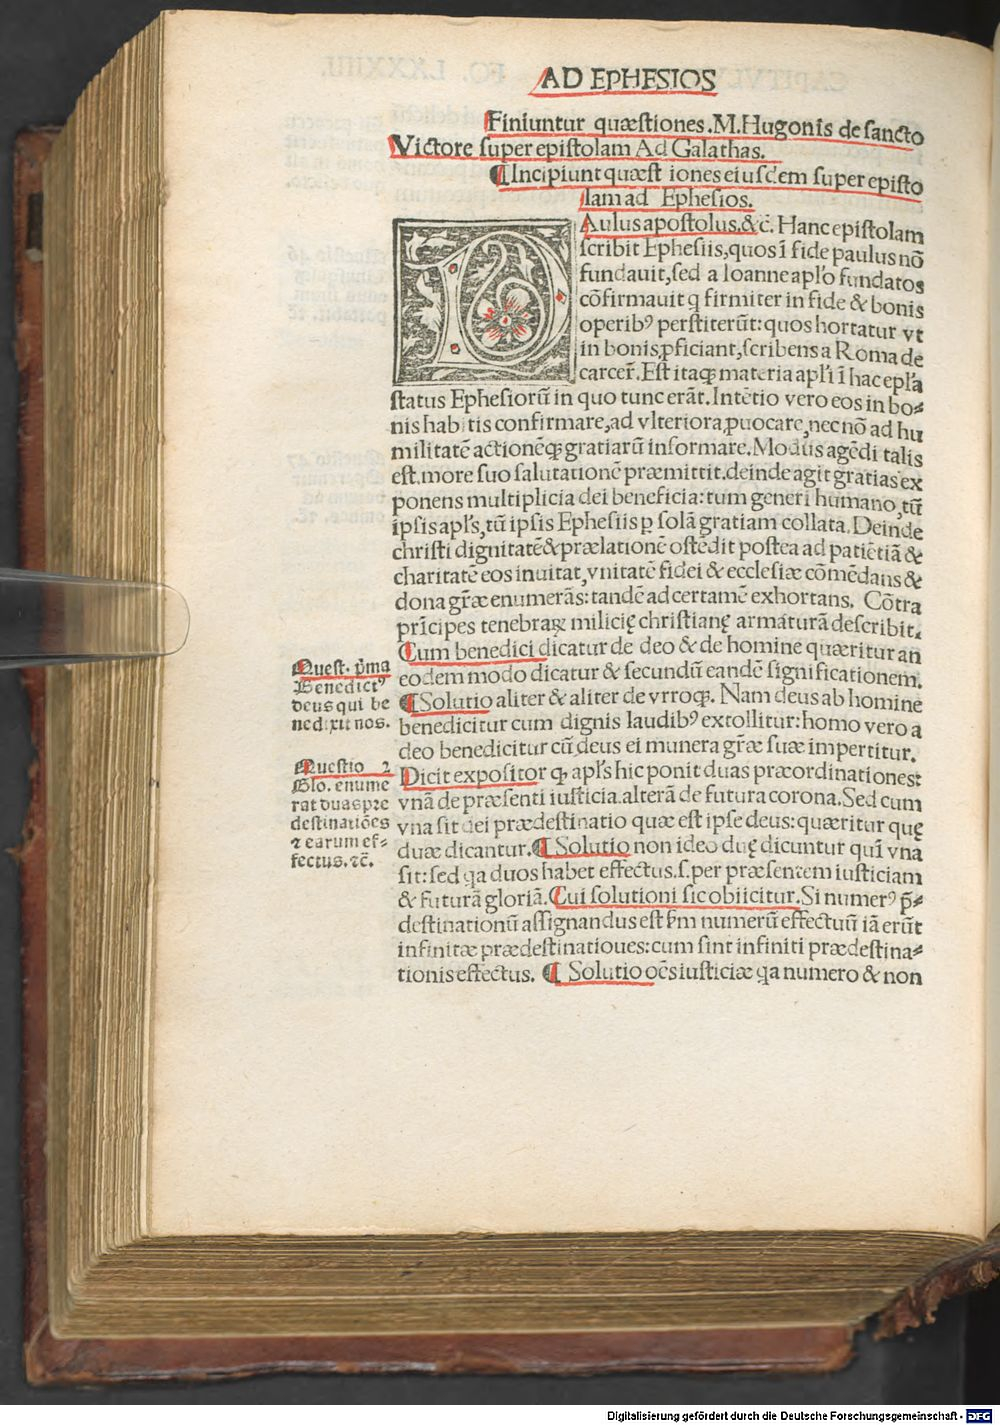 AD EPHESIOS
Finiuntur quæstiones.M.Hugonis de sancto
Victore super epistolam Ad Galathas.
¶Incipiunt quæst iones eiusdem super episto
lam ad Ephesios.
PAulus apostolus.&c̄. Hanc epistolam
scribit Ephesiis,quos ī fide paulus nō
fundauit,sed a Ioanne apl'o fundatos
cōfirmauit q firmiter in fide & bonis
operibꝰ perstiterūt:quos hortatur vt
in bonis ꝓficiant,scribens a Roma de
carcer̄.Est itaqꝫ materia apl'i ī hac epl'a
status Ephesiorū in quo tunc erāt.Intētio vero eos in bo⸗
nis habitis confirmare,ad vlteriora ꝓuocare,nec nō ad hu
militatē actionēqꝫ gratiarū informare.Modus agēdi talis
est.more suo salutationē præmittit.deinde agit gratias ex
ponens multiplicia dei beneficia:tum generi humano,tū
ipsis apl's,tū ipsis Ephesiis ꝑ solā gratiam collata.Deinde
christi dignitatē&prælationē ostēdit postea ad patiētiā &
charitatē eos inuitat,vnitatē fidei & ecclesiæ cōmēdans &
dona gr̄æ enumerās:tandē ad certamē exhortans. Cōtra
prīcipes tenebraꝝ milicię christianę armaturā describit.
Cum benedici dicatur de deo & de homine quæritur an
eodem modo dicatur & secundū eandē significationem.
¶Solutio aliter & aliter de vrroqꝫ. Nam deus ab homine
benedicitur cum dignis laudibꝰ extollitur:homo vero a
deo benedicitur cū deus ei munera gr̄æ suæ impertitur.
Dicit expositor ꝙ apl's hic ponit duas præordinationes:
vnā de præsenti iusticia.alterā de futura corona.Sed cum
vna sit dei prædestinatio quæ est ipse deus:quæritur quę
duæ dicantur.¶Solutio non ideo duę dicuntur quī vna
sit:sed qa duos habet effectus.s.per præsentem iusticiam
& futurā gloriā.Cui solutioni sic obiicitur.Si numerꝰ p̄⸗
destinationū assignandus est s̄m numerū effectuū iā erūt
infinitæ prædestinatioues:cum sint infiniti prædestina⸗
tionis effectus. ¶ Solutio oēs iusticiæ qa numero & non
Quest. p̄ma
Benedictꝰ
deus qui be
nedixit nos.
Questio 2
Glo. enume
rat duas pre
destinatiōes
⁊ earum ef⸗
fectus.⁊c̄.
Digitalisierung gefördert durch die Deutsche Forschungsgemeinschaft - DFG